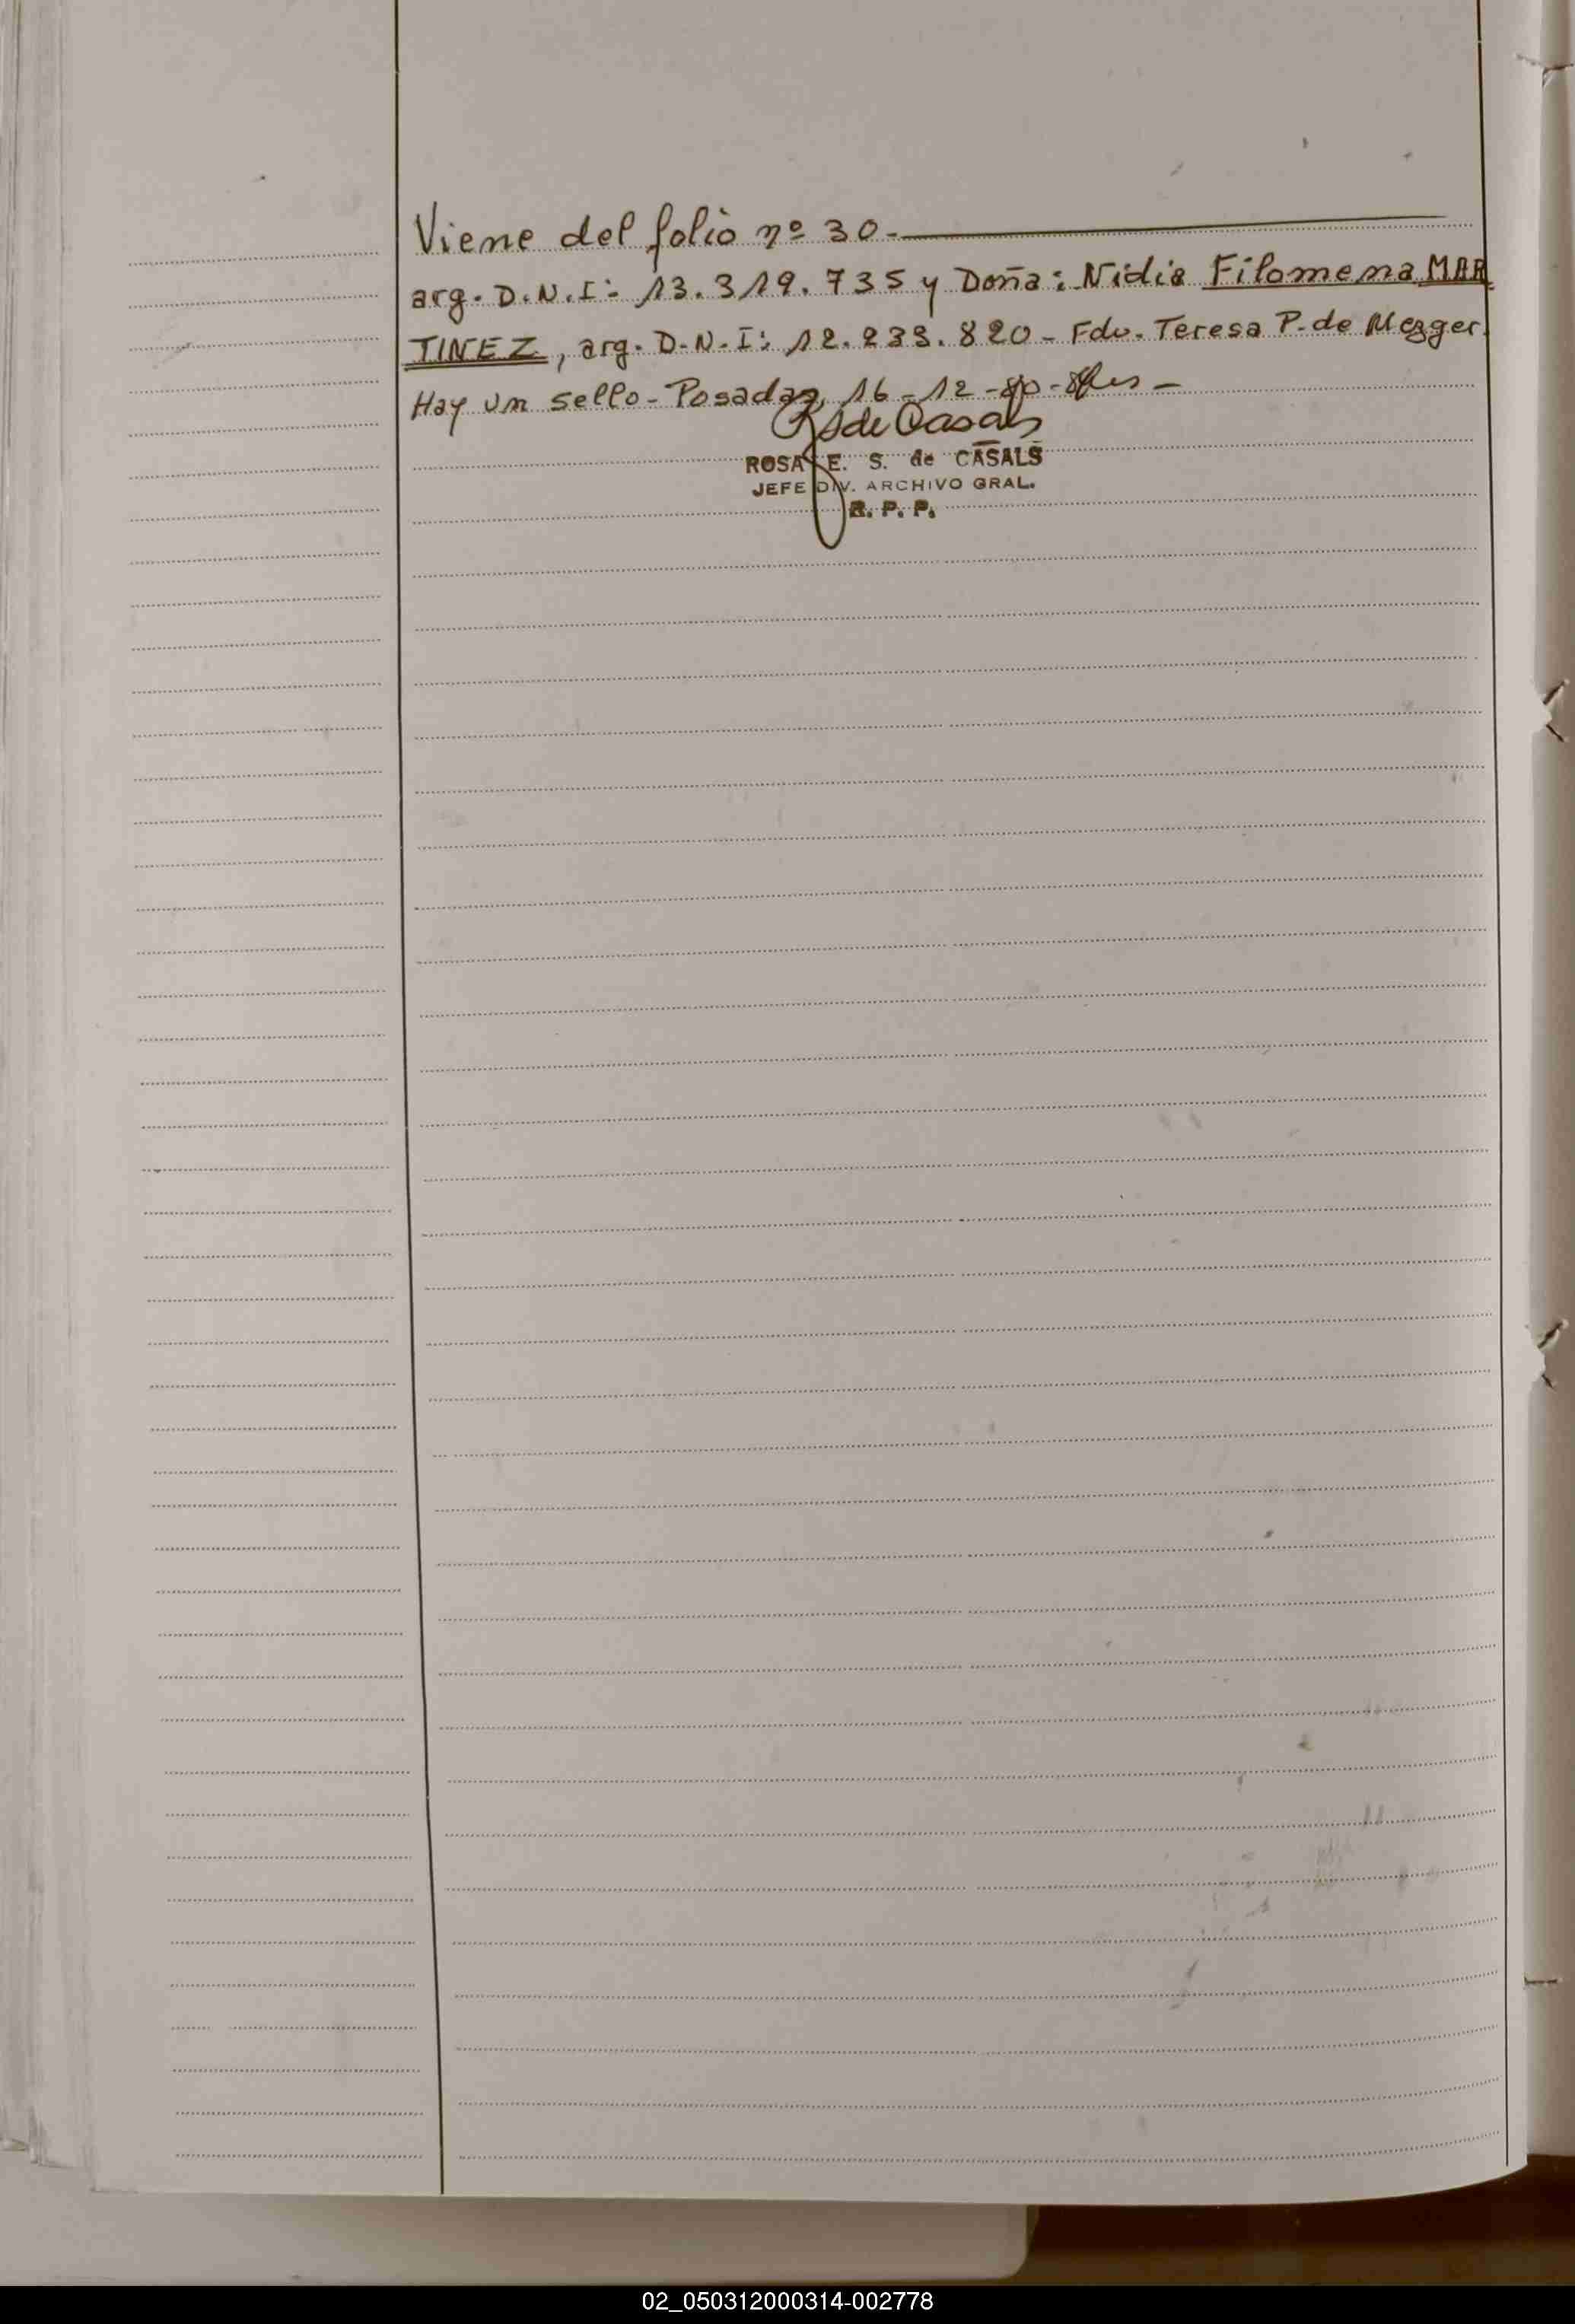 Viene del folio nº 30.-
arg. D.N.I: 13.319.735 y Doña: Nidia Filomena MAR
TINEZ, arg. D.N.I: 12.233.820 - Fdo. Teresa P. de Mezger.
Hay un sello - Posadas, 16-12-80 -
RS de Casals
ROSA E. S. de CASALS
JEFE DIV. ARCHIVO GRAL.
R. P. P.
02_050312000314-002778